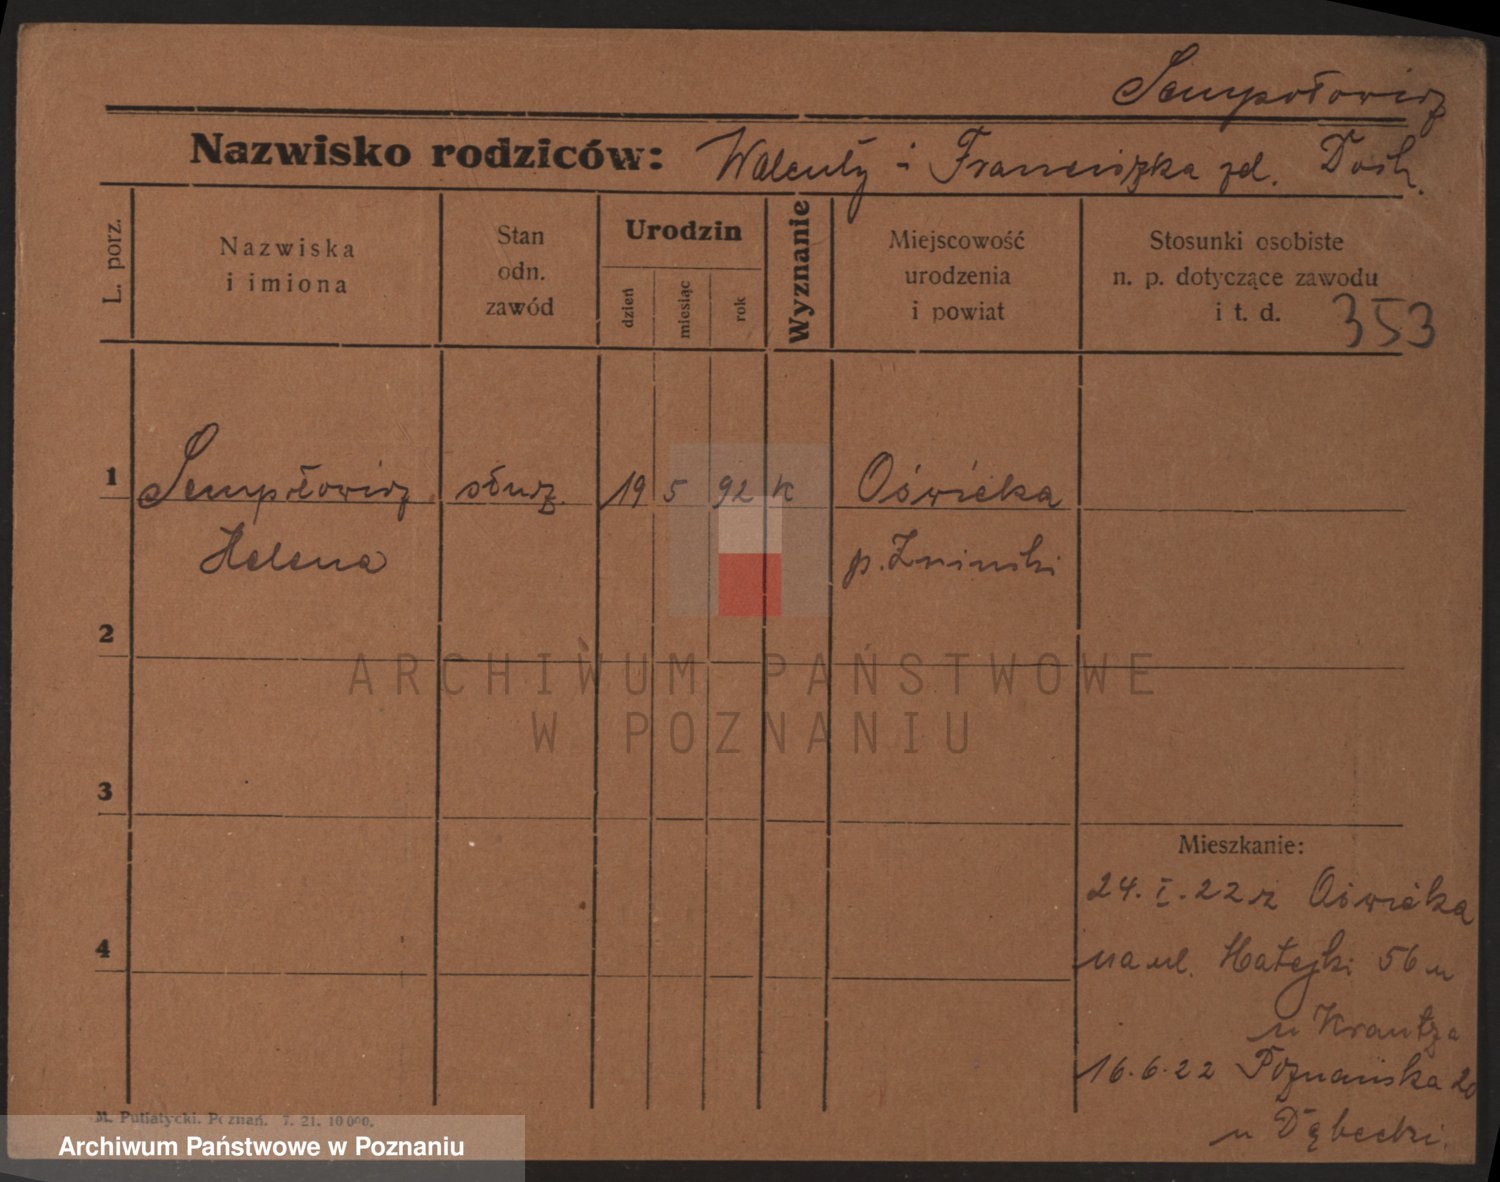 Sempołowicz
Nazwisko rodziców: Walenty i Franciszka zd.
L. porz.
Nazwiska
i imiona
Stan
odn.
zawód
Urodzin
dzień
miesiąc
rok
Wyznanie
Miejscowość
urodzenia
i powiat
Stosunki osobiste
n. p. dotyczące zawodu
i t. d.
353
1 Sempołowicz służ. 19 5 92 K Oćwieka
Helena p. Żniński
2
3
4
Mieszkanie:
24. I. 22 z Oćwieka
na ul. Matejki 56
u Krautza
16. 6. 22 Poznańska 20
u
M. Putiatycki. Poznań. 7. 21. 10000.
ARCHIWUM PAŃSTWOWE
W POZNANIU
Archiwum Państwowe w Poznaniu